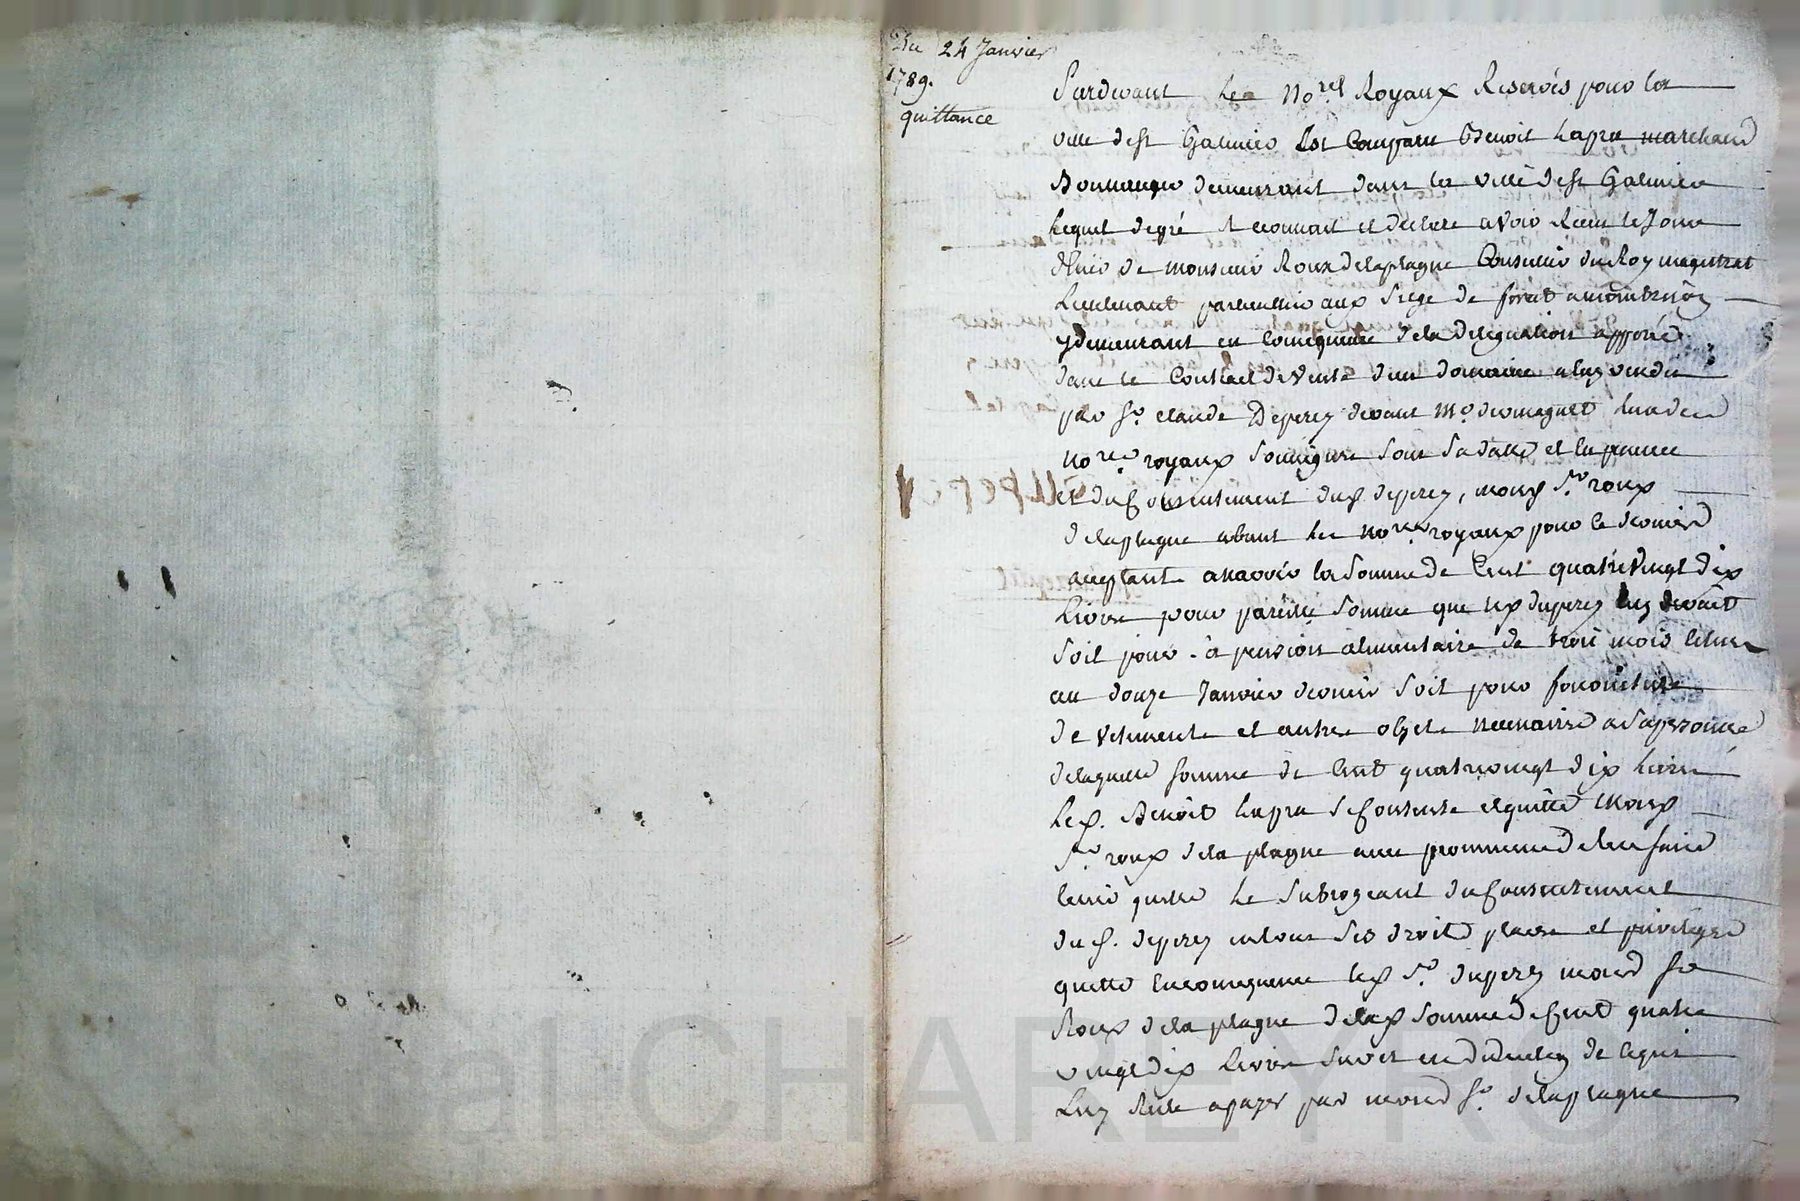 Du 24 Janvier
1789.
quittance
Pardevant les No.res Royaux Reservés pour la
ville de st Galmier Est Comparu Benoit Lapra marchand
Boulanger demeurant dans la ville de st Galmier
Lequel de gré Reconnait et declare avoir Recu le Jour
d'hier de monsieur Roux delaplagne Conseiller du Roy magistrat
Lieutenant particulier aux siege de forest a montbrison
y demeurant en consequence de la delegation apposée
dans le Contract de vente d'un domaine a luy vendu
par sr. claude Deperey devant Me
no.res royaux soussignes sous sa datte et en presence
et du Consentement dud. deperey, mond. sr. roux
delaplagne absent les no.res royaux pour le dernier
acceptant a savoir la somme de Cent quatrevingt dix
Livres pour pareille somme que led. duperey luy devait
soit pour - a pension alimentaire de trois mois echus
au douze Janvier dernier soit pour fourniture
de vetements et autres objets necessaires a sa personne
de laquelle somme de Cent quatrevingt dix Livres
Led. Benoit Lapra se Contente et quitte mond.
sr. roux dela plagne avec promesse de l'en faire
tenir quitte Le subrogeant du Consentement
du s. deperey en tous ses droits places et privileges
quitte en consequence led. sr. duperey mond. sr
Roux dela plagne de lad. somme de Cent quatre
vingt dix Livres de
Luy Reste a payer par mond. sr. delaplagne
CHAREYRO